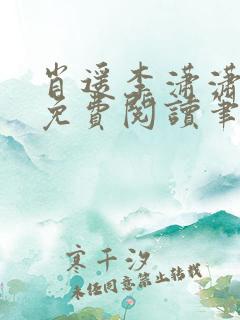 肖遥李潇潇
免費閱讀筆
寒千汐
未经同意禁止转载